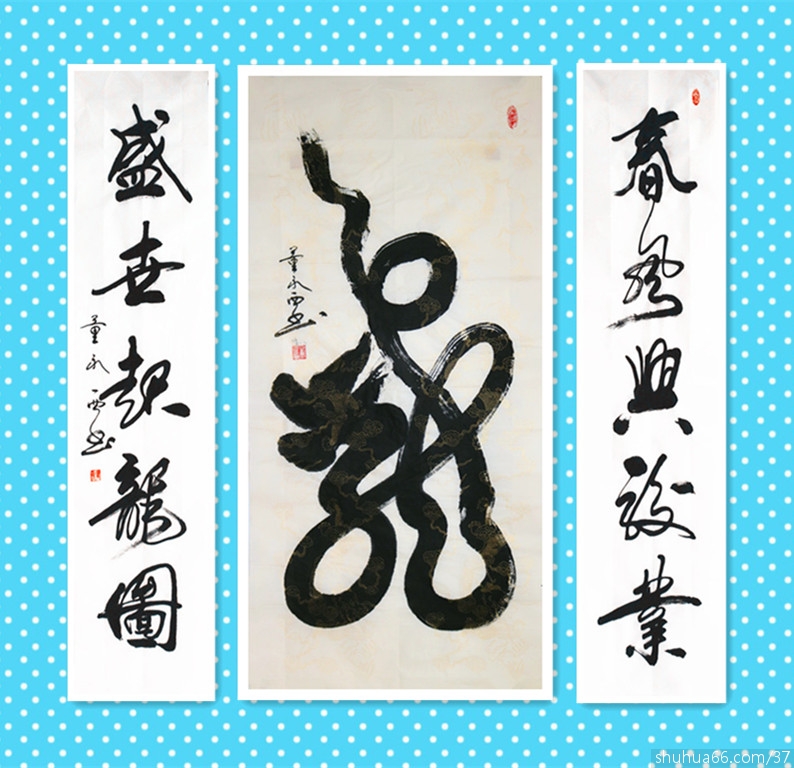 春風興駿業
龍
董永西书
盛世起龍圖
董永西书
shuhua66.com/37